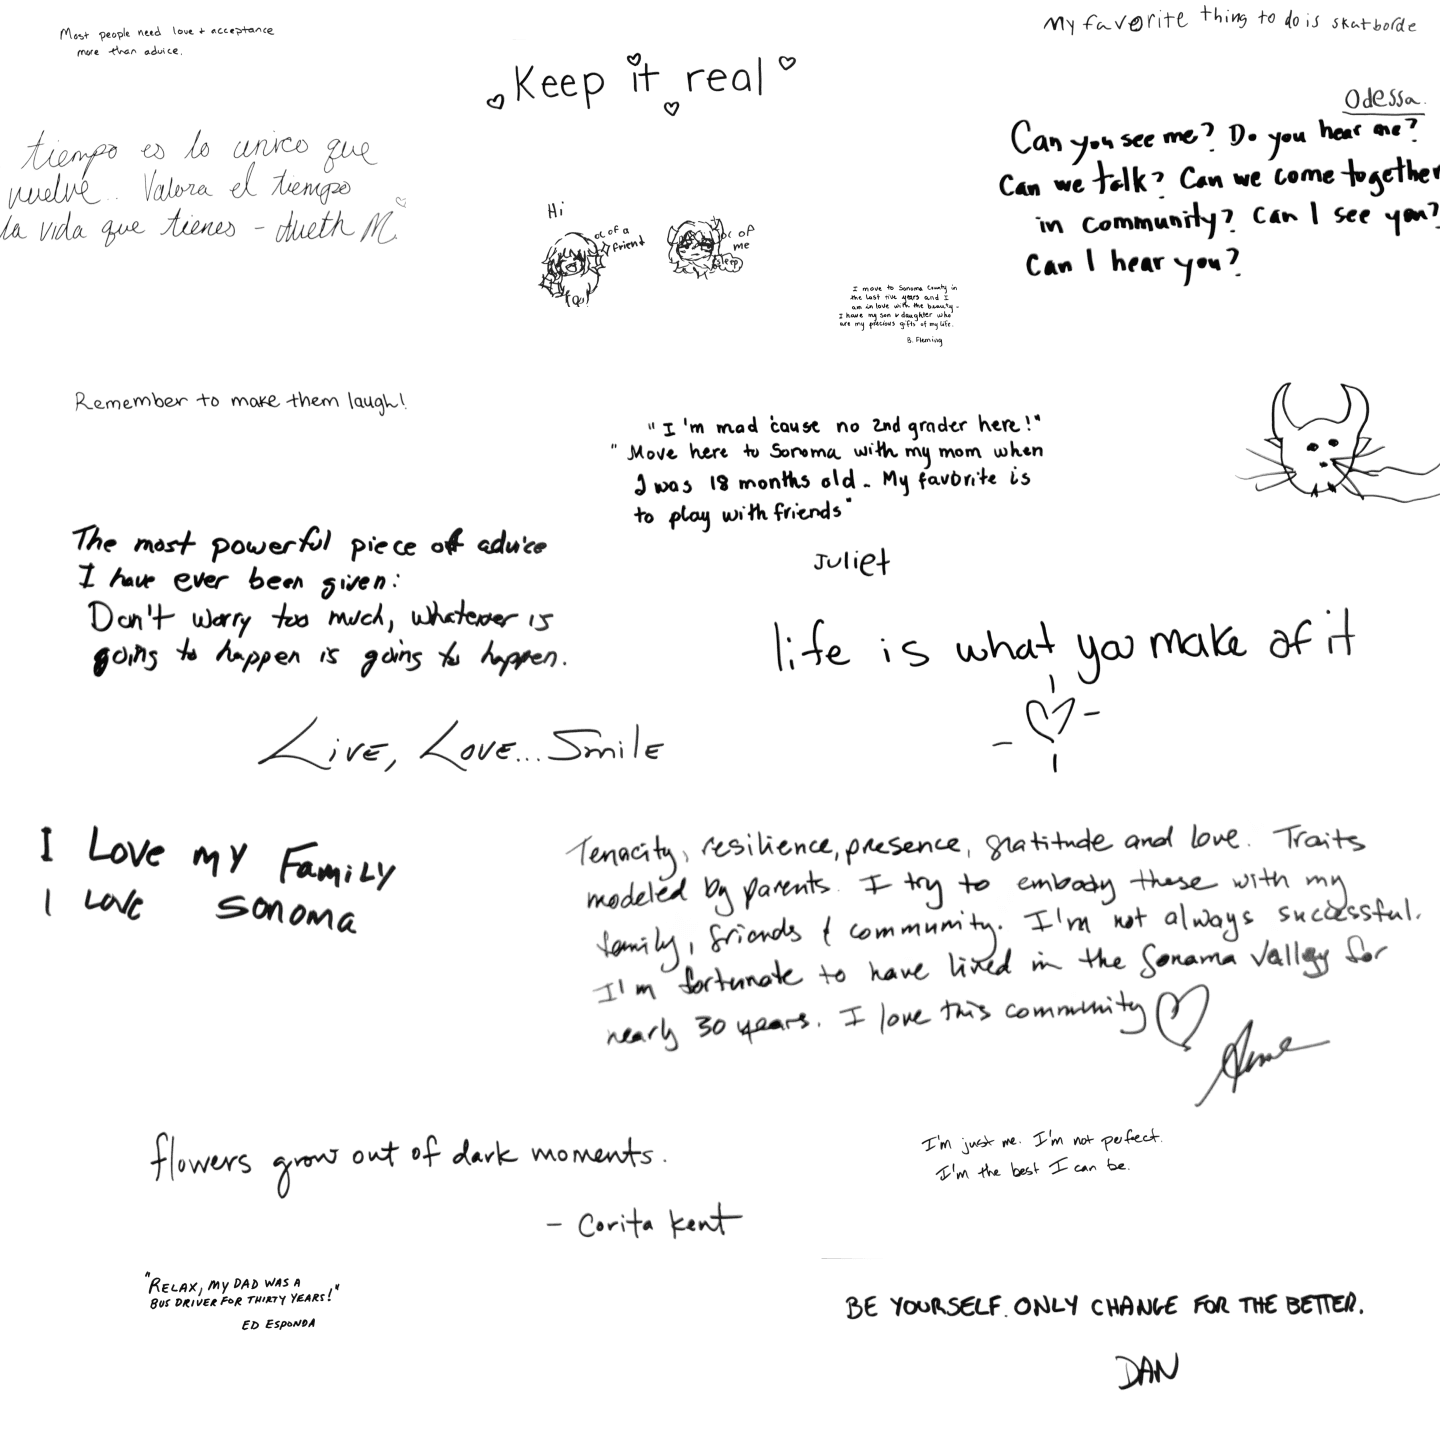 Most people need love + acceptance
more than advice.
Keep it real
My favorite thing to do is skatborde
Odessa.
tiempo es lo unico que
vuelve.. Valora el tiempo
la vida que tienes - M.
Can you see me? Do you hear me?
Can we talk? Can we come together
in community? Can I see you?
Can I hear you?
Hi
oc of a
friend
oc of
me
I move to Sonoma County in
the last five years and I
am in love with the beauty -
I have my son & daughter who
are my precious gifts of my life.
B. Fleming
Remember to make them laugh!
"I'm mad 'cause no 2nd grader here!"
"Move here to Sonoma with my mom when
I was 18 months old - My favorite is
to play with friends"
Juliet
The most powerful piece of advice
I have ever been given:
Don't worry too much, whatever is
going to happen is going to happen.
life is what you make of it
Live, Love... Smile
I Love my Family
I Love Sonoma
Tenacity, resilience, presence, gratitude and love. Traits
modeled by parents. I try to embody these with my
family, friends & community. I'm not always successful.
I'm fortunate to have lived in the Sonoma Valley for
nearly 30 years. I love this community
flowers grow out of dark moments.
- Corita Kent
I'm just me. I'm not perfect.
I'm the best I can be.
"RELAX, MY DAD WAS A
BUS DRIVER FOR THIRTY YEARS!"
ED ESPONDA
BE YOURSELF. ONLY CHANGE FOR THE BETTER.
DAN